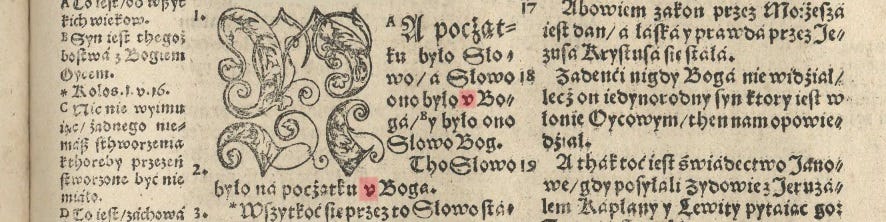 A To iest/od wszyt
kich wiekow.
B Syn iest thegoż
bostwá z Bogiem
Oycem.
* Kolos.1.v.16.
C Nic nie wyimu
iąc/żadnego nie-
mász sthworzenia
kthoreby przezeń
stworzone być nie
miáło.
D To iest/záchowá
1. A NA począt-
ku było Slo-
wo/a Slowo
ono było v Bo-
gá/ B y było ono
Slowo Bog.
2. Tho Slowo
było ná początku v Bogá.
3. *Wszytkoć sie przez to Slowo stá-
17 Abowiem zakon przez Moiżeszá
iest dan/á łáská y prawdá przez Je-
zusá Krystusá sie stáłá.
18 Żadenći nigdy Bogá nie widział/
lecż on iedynorodny syn ktory iest w
łonie Oycowym/then nam opowie-
dział.
19 A thák toć iest świádectwo Jano-
we/gdy posyłáli Żydowie z Jeruzá-
lem Kápłany y Lewity pytáiąc goż